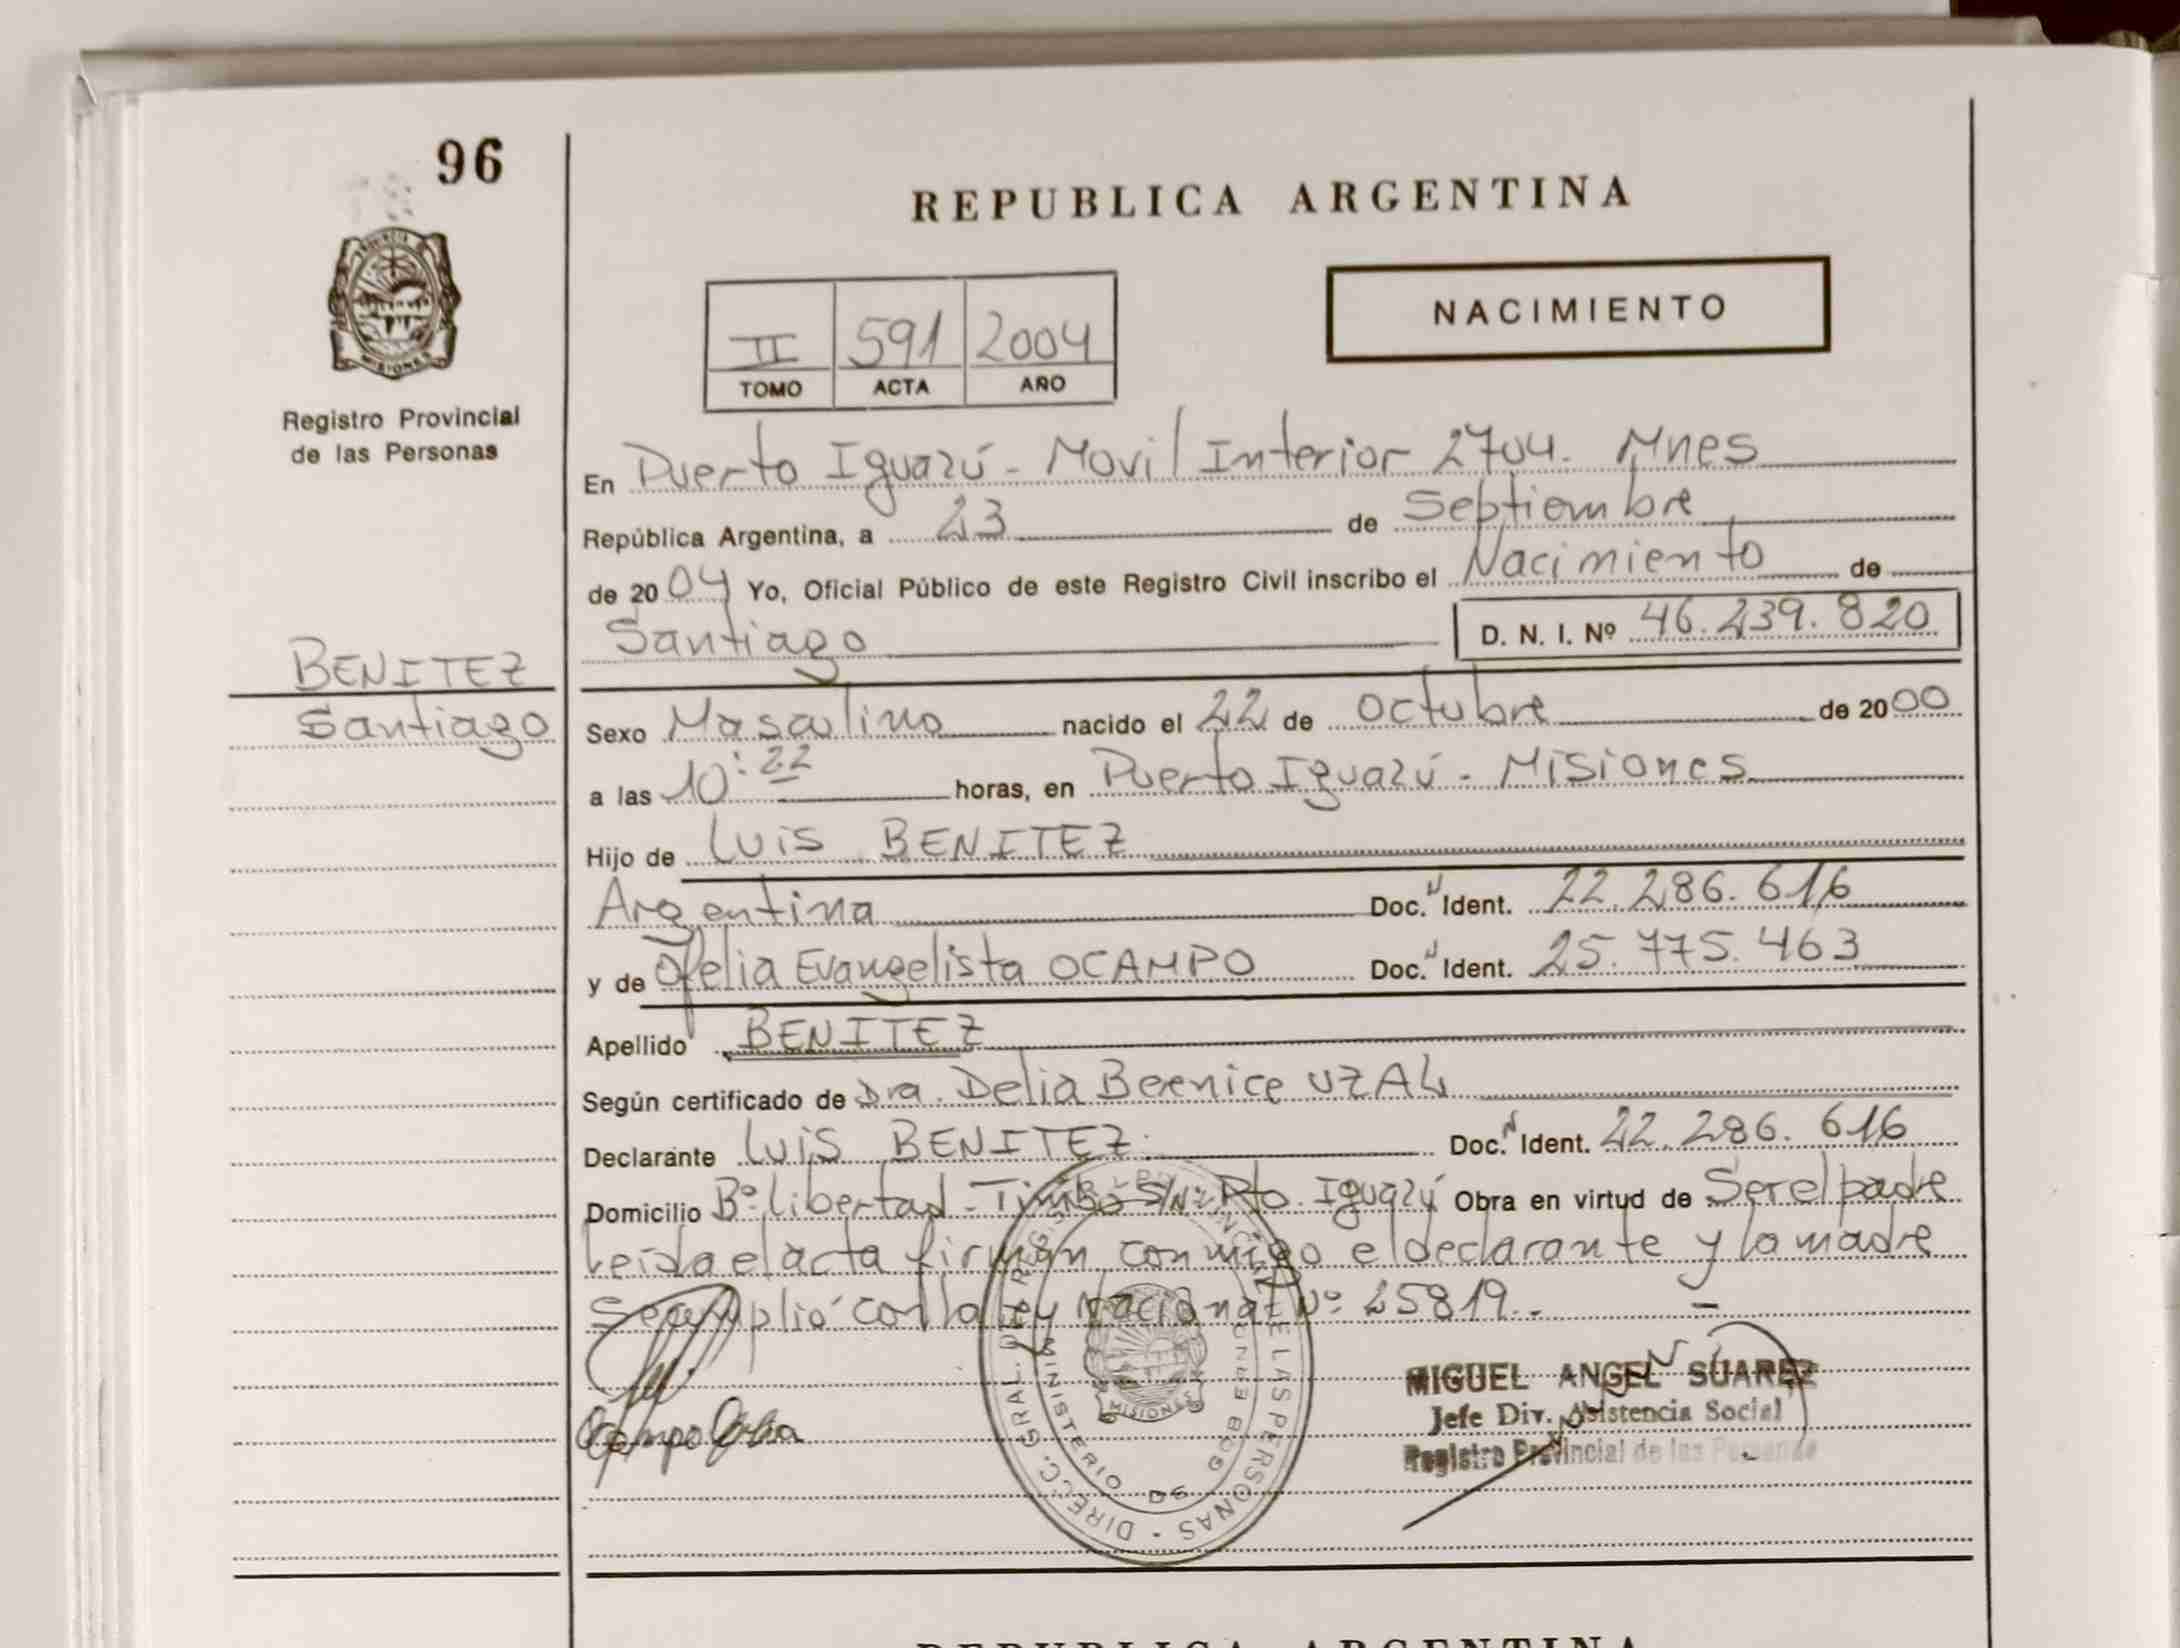 96
REPUBLICA ARGENTINA
NACIMIENTO
II 591 2004
TOMO ACTA AÑO
Registro Provincial
de las Personas
En Puerto Iguazú - Movil Interior 2704. Mnes
República Argentina, a 23 de Septiembre
de 2004 Yo, Oficial Público de este Registro Civil inscribo el Nacimiento de
Santiago D. N. I. Nº 46.239.820
BENITEZ
Santiago
Sexo Masculino nacido el 22 de octubre de 2000
a las 10:22 horas, en Puerto Iguazú - Misiones
Hijo de Luis BENITEZ
Argentina Doc. Ident. 22.286.616
y de Ofelia Evangelista OCAMPO Doc. Ident. 25.775.463
Apellido BENITEZ
Según certificado de Dra. Delia Berenice UZAL
Declarante Luis BENITEZ Doc. Ident. 22.286.616
Domicilio Bº libertad - Timbo S/Nº Pto. Iguazú Obra en virtud de Ser el padre
Leida el acta firman conmigo el declarante y la madre
Se cumplió con la ley Nacional Nº 25819.-
Ocampo Ofelia
MIGUEL ANGEL SUAREZ
Jefe Div. Asistencia Social
Registro Provincial de las Personas
DIRECC. GRAL. DEL REGISTRO PROVINCIAL DE LAS PERSONAS
MINISTERIO DE GOBIERNO
MISIONES
REPUBLICA ARGENTINA